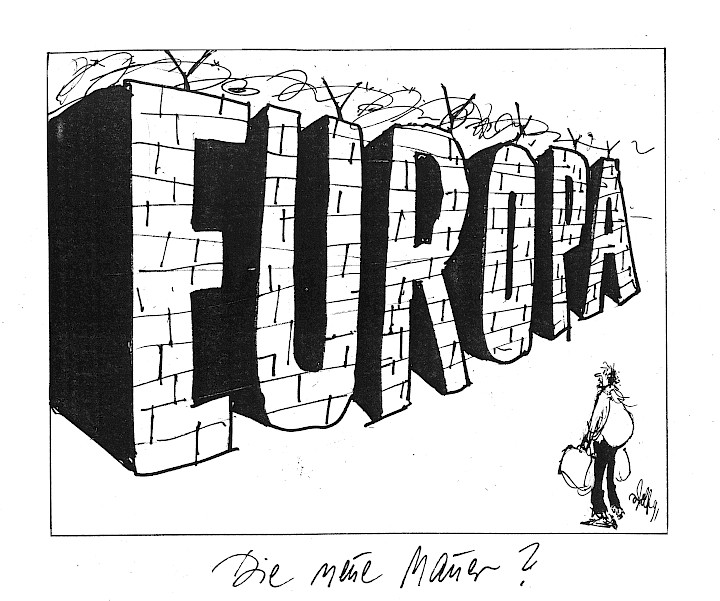 EUROPA
Die neue Mauer?